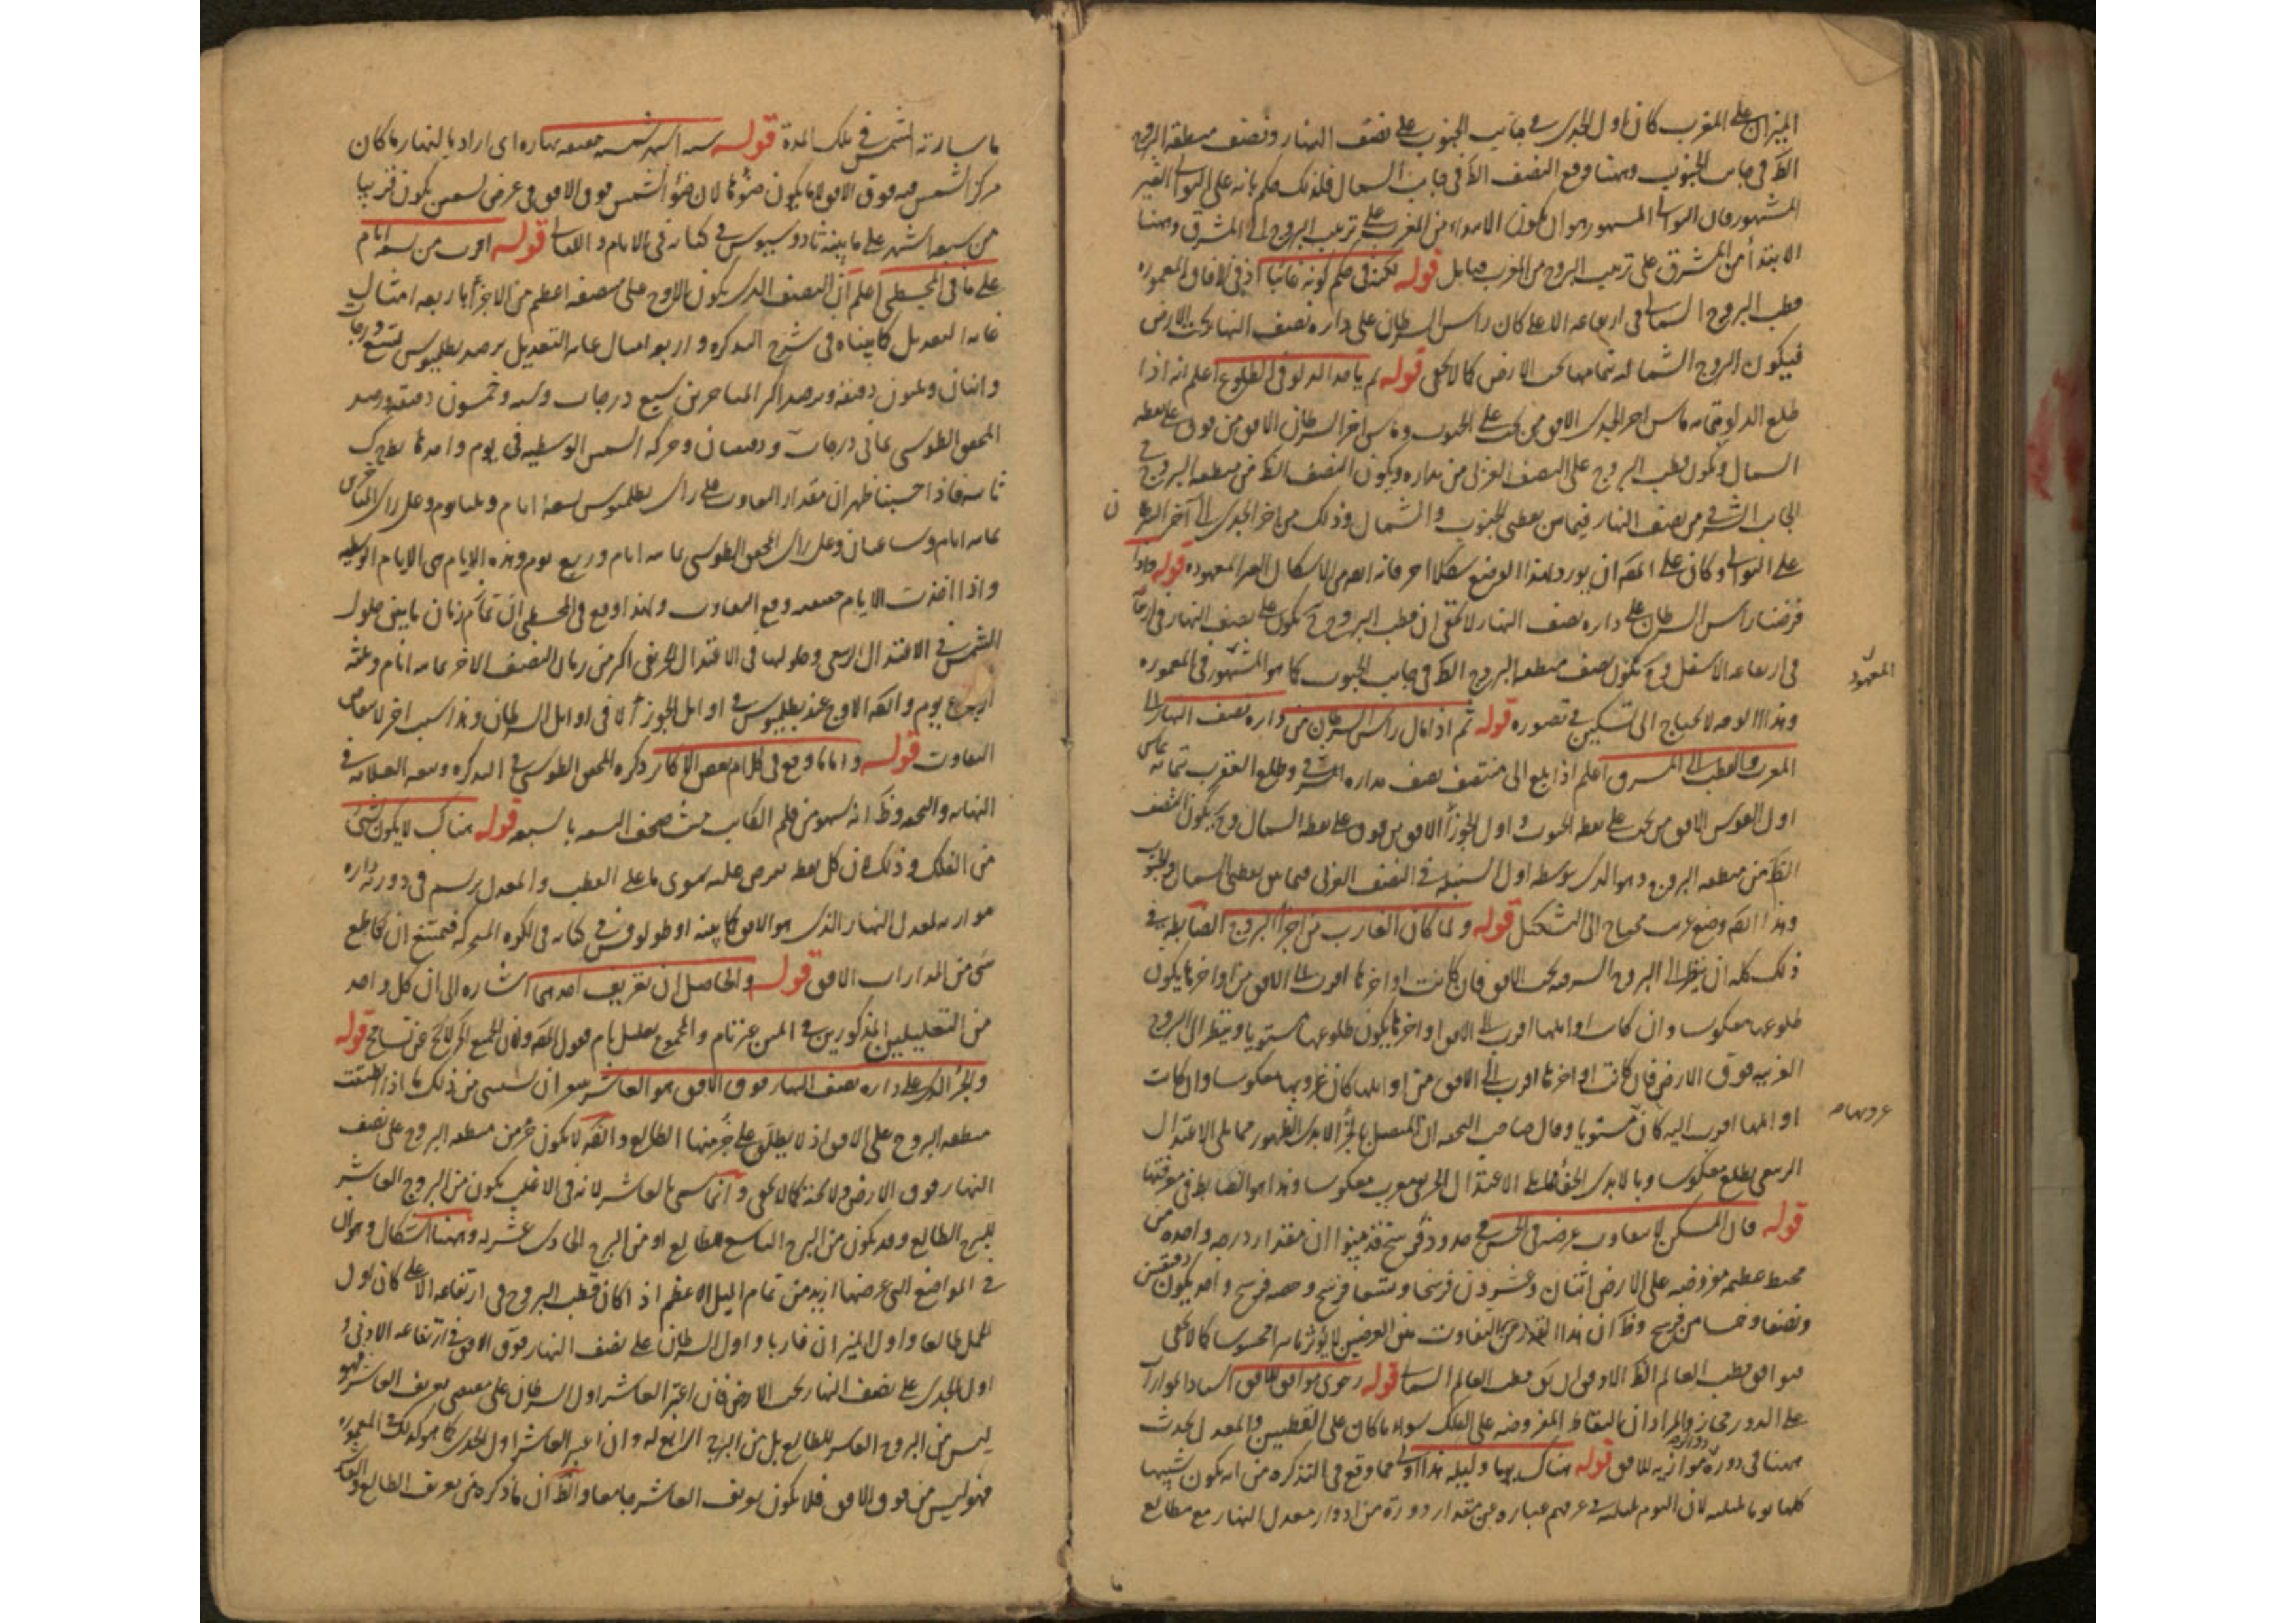 الميزان على المغرب كان اول الجدى فى جانب الجنوب على نصف النهار ونصف منطقة البروج
الظ فى جانب الجنوب وههنا وقع النصف الظ فى جانب الشمال فلذلك حكم بانه على التوالى الغير
المشهور فان التوالى المشهور هو ان يكون الابتداء من المغرب على ترتيب البروج الى المشرق وههنا
الابتدأ من المشرق على ترتيب البروج من المغرب قوله لكنه فى حكم كونه غائبا اذ فى الافاق المعموره
قطب البروج الشمالى فى ارتفاعه الاعلى كان راس السرطان على دايره نصف النهار تحت الارض
فيكون البروج الشماليه تمامها تحت الارض كما لا يخفى قوله ثم ياخذ الدلو فى الطلوع اعلم انه اذا
طلع الدلو بتمامه ماس اخر الجدى الافق من تحت على الجنوب وماس اخر السرطان الافق من فوق على نقطه
الشمال ويكون قطب البروج على النصف الغربى من مداره ويكون النصف الظ من منطقه البروج فى
الجانب الشرقى من نصف النهار فيما بين نقطتى الجنوب والشمال وذلك من اخر الجدى الى آخر السرطان
على التوالى وكان على المصه ان يورد لهذا الوضع شكلا اخر فانه اهم من الاشكال الغير المعهوده قوله واذا
فرضنا راس السرطان على دايره نصف النهار لا يخفى ان قطب البروج ح يكون على نصف النهار
فى ارتفاعه الاسفل فح يكون نصف منطقه البروج الظ فى جانب الجنوب كما هو المشهور فى المعموره
المعهود
وهذا الوجه لا يحتاج الى تشكيل فى تصوره قوله ثم اذا مال راس السرطان من دايره نصف النهار الى
المغرب والقطب الى المشرق اعلم اذا بلغ الى منتصف نصف مداره الشرقى وطلع العقرب بتمامه ماس
اول القوس الافق من تحت على نقطه الجنوب واول الجوزأ الافق من فوق على نقطه الشمال وح يكون النصف
الظ من منطقه البروج وهو الذى يتوسطه اول السنبله فى النصف الغربى فيما بين نقطتى الشمال والجنوب
وهذا ايضه وضع غريب محتاج الى التشكيل قوله ولما كان الغارب من اجزأ البروج الضابطه فى
ذلك كله ان ينظر الى البروج الشرقيه تحت الافق فان كانت اواخرها اقرب الى الافق من اوايلها يكون
طلوعها معكوسا وان كانت اوايلها اقرب الى الافق من اواخرها يكون طلوعها مستويا وينظر الى البروج
الغربيه فوق الارض فان كانت اواخرها اقرب الى الافق من اوايلها كان غروبها معكوسا وان كانت
اوايلها اقرب اليه كان مستويا وقال صاحب التحفه ان المتصل بالجزء الابدى الظهور مما يلى الاعتدال
الربيعى يطلع معكوسا وبالابدى الخفأ مما يلى الاعتدال الخريفى يغرب معكوسا وهذا هو الضابط فى معرفتها
قوله فان المسكن لا يتفاوت عرضه فى الحس فى حدود فرسخ قد بينوا ان مقدار درجه واحده من
محيط عظيمه مفروضه على الارض اثنان وعشرون فرسخا وتسعا فرسخ وحصه فرسخ واحد يكون دقيقتين
ونصفا وخمسا من فرسخ وظ ان هذا القدر من التفاوت بين العرضين لا يؤثر تاثيرا محسوسا كما لا يخفى
قوله رحوى موافق للافق اسناد الموازاة
على الدور مجاز والمراد ان النقاط المفروضه على الفلك سواء ما كان على القطبين والمعدل يحدث
ههنا فى دوره موازيه للافق قوله هناك يوما وليله هذا اولى مما وقع فى التذكره من انه يكون سنتها
كلها يوما بليلته لان اليوم بليلته فى عرفهم عباره عن مقدار دورة من ادوار معدل النهار مع مطالع
ما سارته الشمس فى تلك المدة قوله سته اشهر شمسيه حقيقيه نهاره اى اراد بالنهار ما كان
مركز الشمس فيه فوق الافق لا ما يكون ضوئها لان ضؤ الشمس فوق الافق فى عرض تسعين يكون قريبا
من سبعه اشهر على ما بينه ثاودوسيوس فى كتابه فى الايام والليالى قوله اقرب من تسعه ايام
على ما فى المجسطى اعلم ان النصف الذى يكون الاوج على منصفه اعظم من الاخر باربعه امثال
غايه التعديل كما بيناه فى شرح التذكره واربعه امثال غايه التعديل برصد بطلميوس تسع درجات
واثنان وثلثون دقيقه وبرصد اكثر المتاخرين سبع درجات وسته وخمسون دقيقه وبرصد
المحقق الطوسى ثمانى درجات ودقيقتان وحركه الشمس الوسطيه فى يوم واحد نط ح ك
ثانيه فاذا حسبنا ظهر ان مقدار التفاوت على راى بطلميوس تسعه ايام وثلثا يوم وعلى راى المتاخرين
ثمانيه ايام وساعتان وعلى راى المحقق الطوسى ثمانيه ايام وربع يوم وهذه الايام هى الايام الوسطيه
واذا اخذت الايام حقيقيه وقع التفاوت ولهذا وقع فى المجسطى ان تمام زمان ما بين حلول
الشمس فى الاعتدال الربيعى وحلولها فى الاعتدال الخريفى اكثر من زمان النصف الاخر بثمانيه ايام وثلثه
ارباع يوم وايضه الاوج عند بطلميوس فى اوايل الجوزأ لا فى اوايل السرطان وهذا سبب اخر لانتقاص
التفاوت قوله واما ما وقع فى كلام بعض الاكابر ذكره المحقق الطوسى فى التذكره وتبعه العلامه فى
النهايه والتحفه وظ انه سهو من قلم الكاتب حيث صحف التسعه بالسبعه قوله هناك لا يكون شئ
من الفلك وذلك لان كل نقطه تفرض عليه سوى ما على القطب والمعدل يرسم فى دورته دايره
موازيه لمعدل النهار الذى هو الافق كما بينه اوطولوقس فى كتابه فى الكره المتحركه فيمتنع ان يقاطع
شئ من المدارات الافق قوله والحاصل ان تعريف احدهما اشاره الى ان كل واحد
من التعليلين المذكورين فى المتن غير تام والمجموع تعليل تام فقول المصه ولان الجميع الخ لا يخ عن تسامح قوله
والجزء الذى على دايره نصف النهار فوق الافق هو العاشر ينبغى ان يستثنى من ذلك ما اذا انطبقت
منطقه البروج على الافق اذ لا يطلق على جزء منها الطالع وايضه لا يكون جزء من منطقه البروج على نصف
النهار فوق الارض ولا تحته كما لا يخفى وانما سمى بالعاشر لانه فى الاغلب يكون من البروج العاشر
للبرج الطالع وقد يكون من البرج التاسع للطالع او من البرج الحادى عشر له وههنا اشكال وهو ان
فى المواضع التى عرضها ازيد من تمام الميل الاعظم اذا كان قطب البروج فى ارتفاعه الاعلى كان اول
الحمل طالعا واول الميزان غاربا واول السرطان على نصف النهار فوق الافق فى ارتفاعه الادنى و
اول الجدى على نصف النهار تحت الارض فان اعتبر العاشر اول السرطان على مقتضى تعريف العاشر فهو
ليس من البروج العاشر للطالع بل من البرج الرابع له وان اعتبر العاشر اول الجدى كما هو كذلك فى المعموره
فهو ليس من فوق الافق فلا يكون تعريف العاشر جامعا والظ ان ما ذكره من تعريف الطالع والعاشر